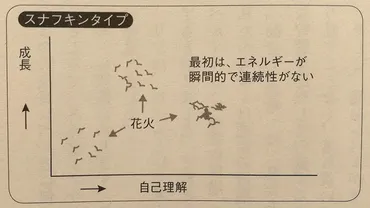 スナフキンタイプ
成長
最初は、エネルギーが
瞬間的で連続性がない
花火
自己理解